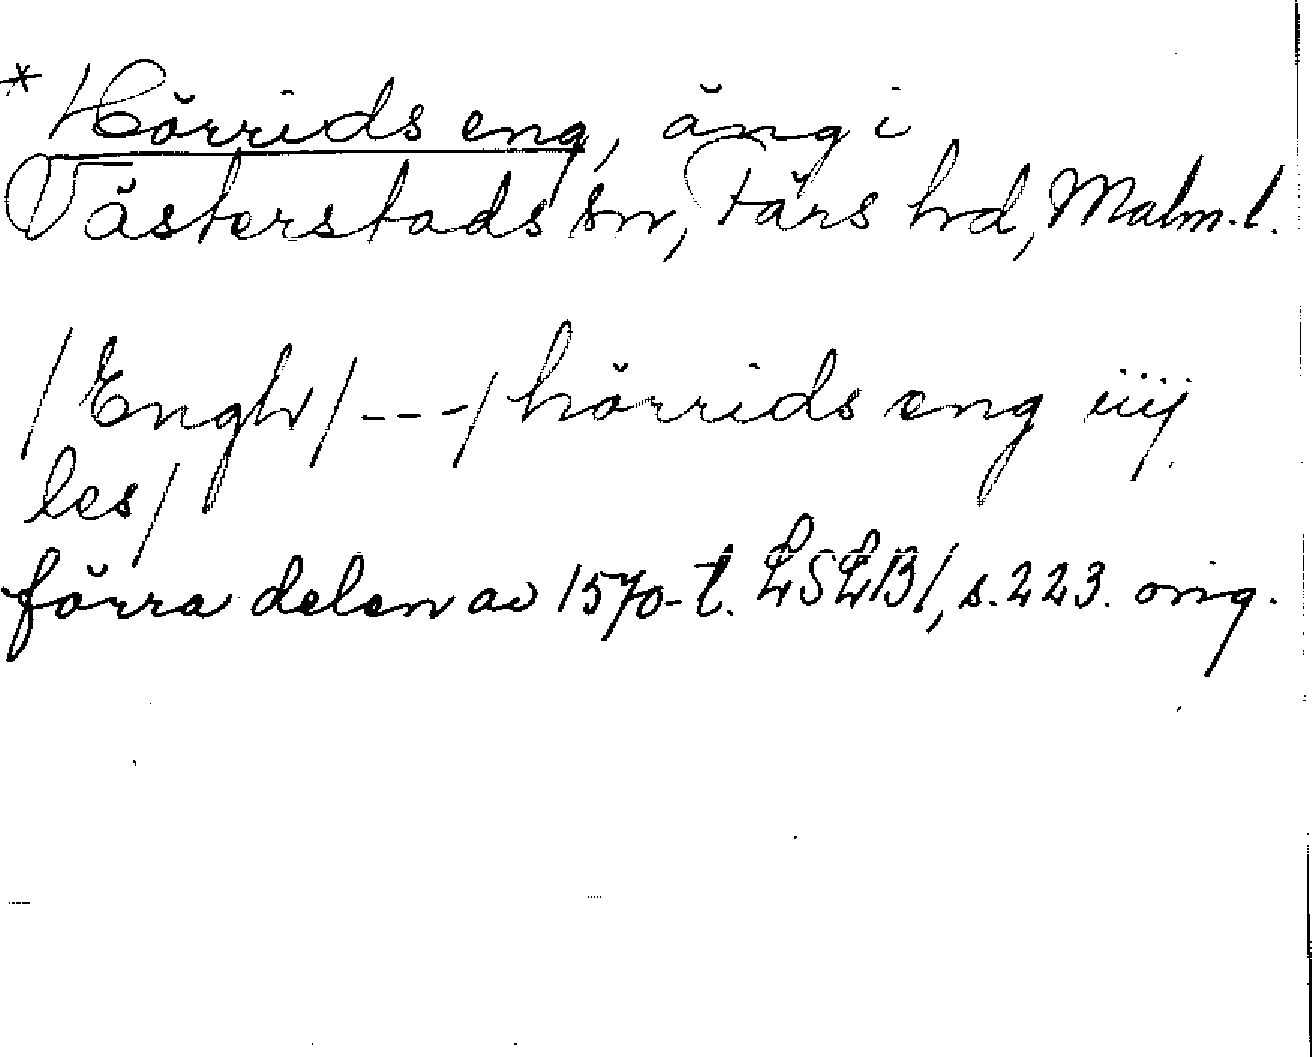 * Hörrids eng, äng i
Västerstads sn, Färs hd, Malm.l.
/Engh/---/hörrids eng iiij
les/
förra delen av 1570-t. LSLB1, s.223. orig.